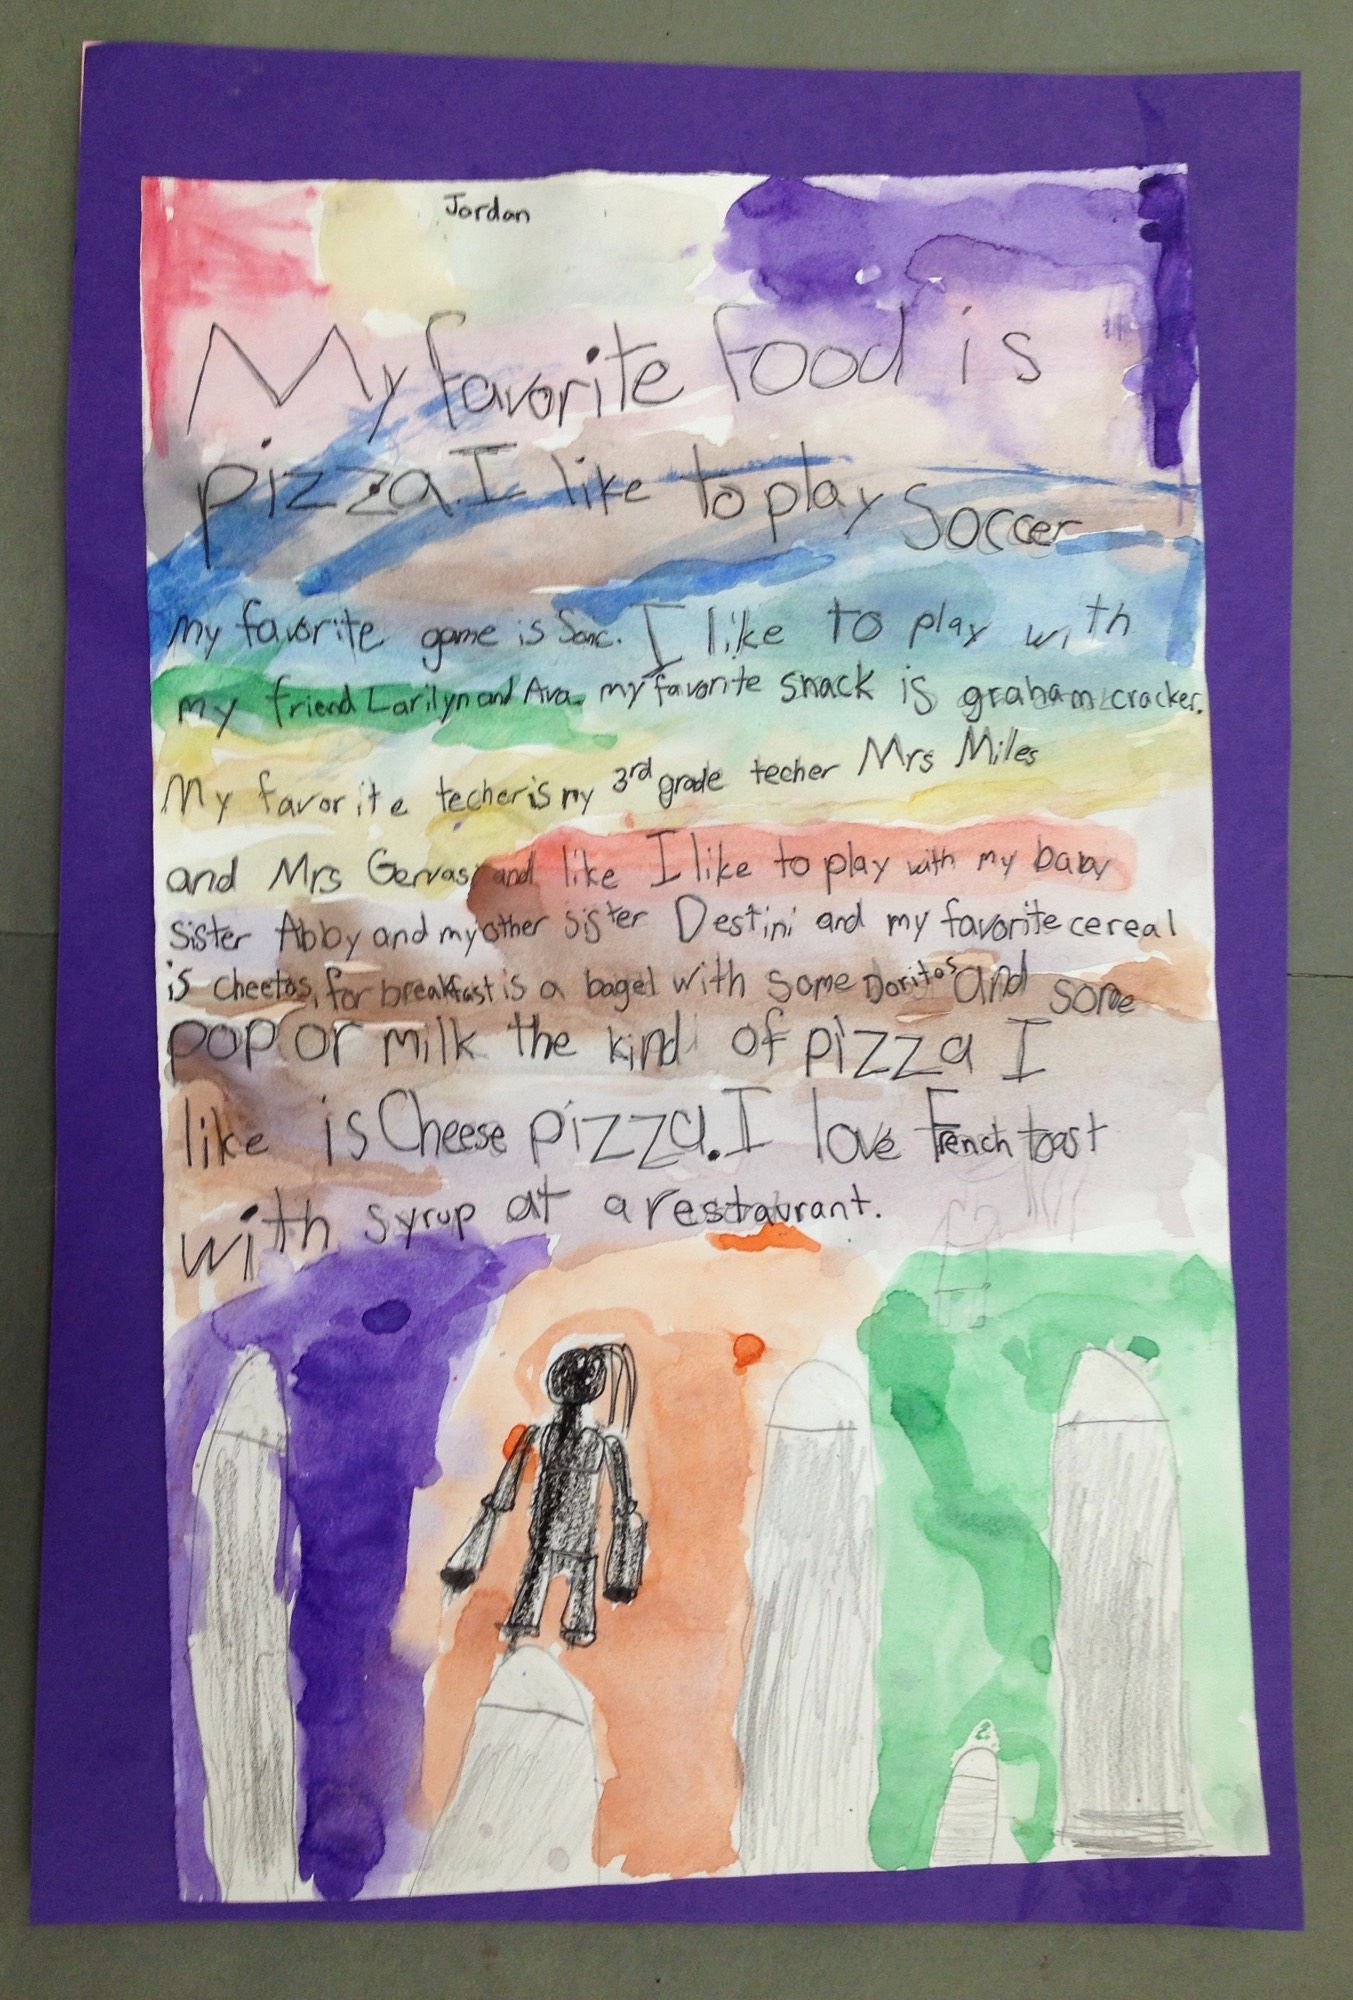 Jordan
My favorite food is
pizza. I like to play Soccer
my favorite game is Sonic. I like to play with
my friend Larilyn and Ava. my favorite snack is graham cracker.
My favorite techer is my 3rd grade techer Mrs Miles
and Mrs Gervasi and like I like to play with my baby
sister Abby and my other sister Destini and my favorite cereal
is cheetos, for breakfast is a bagel with some Doritos and some
pop or milk the kind of pizza I
like is Cheese pizza. I love French toast
with syrup at a restaurant.